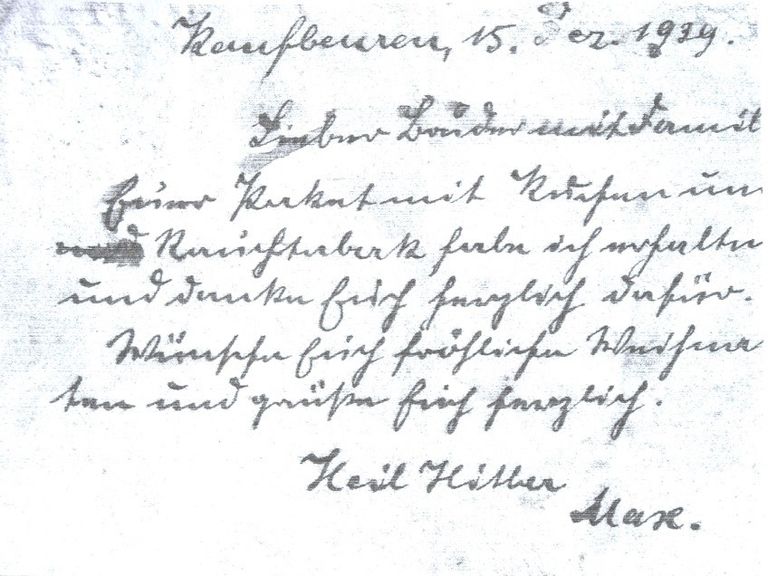 Kaufbeuren, 15. Dez. 1939.
Lieber Bruder mit Famil
Euer Packet mit Kuchen un
Rauchtabak habe ich erhalten
und danke Euch herzlich dafür.
Wünsche Euch fröhliche Weihna
ten und grüße Euch herzlich.
Heil Hitler
Max.